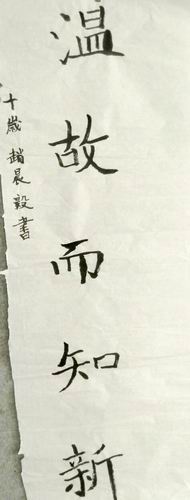 温故而知新
十歲趙晨毅書